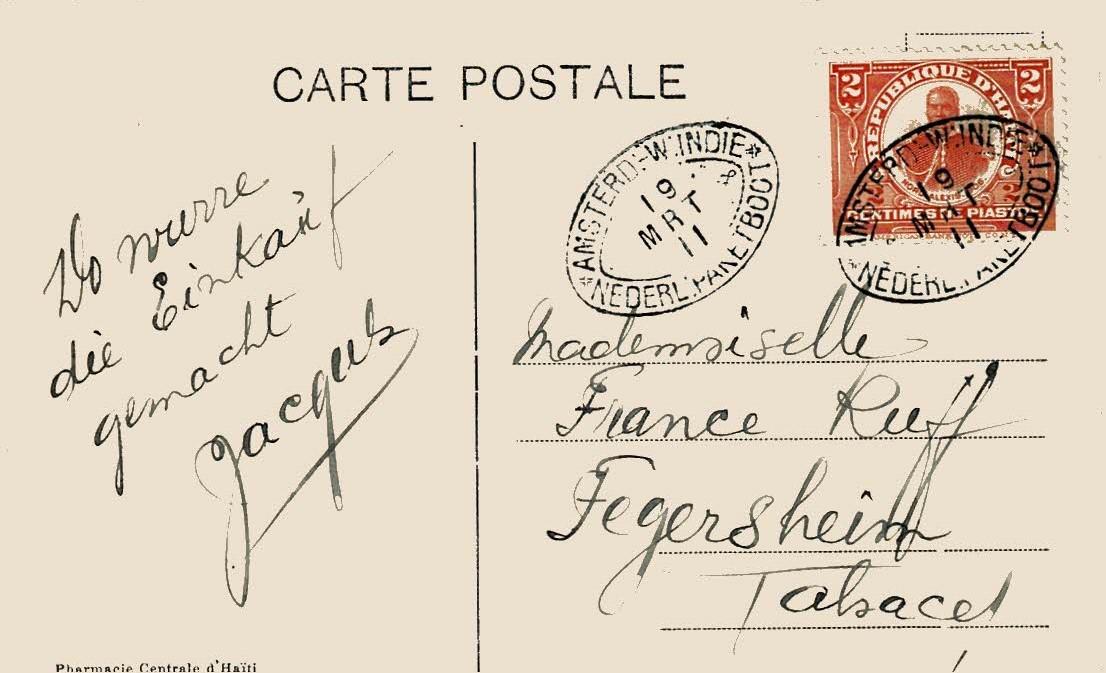 CARTE POSTALE
2 2
RÉPUBLIQUE D'HA
CENTIMES DE PIASTRE
*AMSTERD-W.INDIE*
19
MRT
11
NEDERL.PAKETBOOT
AMSTERD-W.INDIE*
19
MRT
11
*NEDERL.PAKETBOOT
Do wurre
die Einkäuf
gemacht
Jacques
Mademoiselle
France Ruff
Fegersheim
Alsace
Pharmacie Centrale d'Haïti